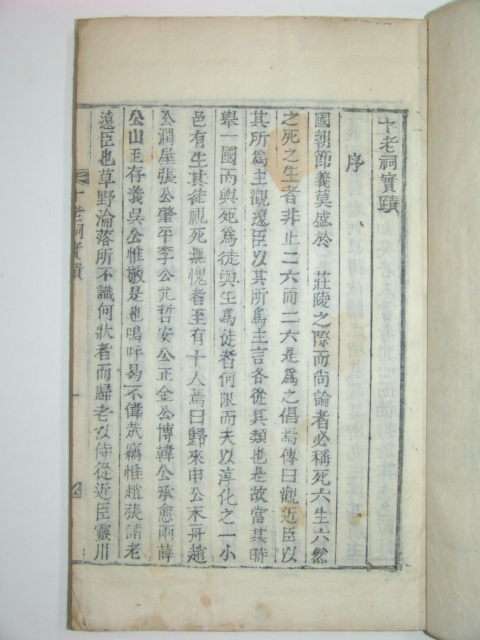 十老祠實蹟
序
國朝節義莫盛於 莊陵之際而尙論者必稱死六生六然
之死之生者非止二六而二六是爲之倡焉傳曰觀近臣以
其所爲主觀遠臣以其所爲主言各從其類也是故當其時
擧一國而與死爲徒與生爲徒者何限而夫以淳化之一小
邑有生其徒視死無愧者至有十人焉曰歸來申公末舟趙
公潤屋張公肇平李公允哲安公正金公博韓公承愈兩薛
公山玉存義吳公惟敬是也嗚呼曷不偉哉竊惟趙張諸老
遠臣也草野淪落所不識何狀者而歸老以侍從近臣靈川
十老祠實蹟